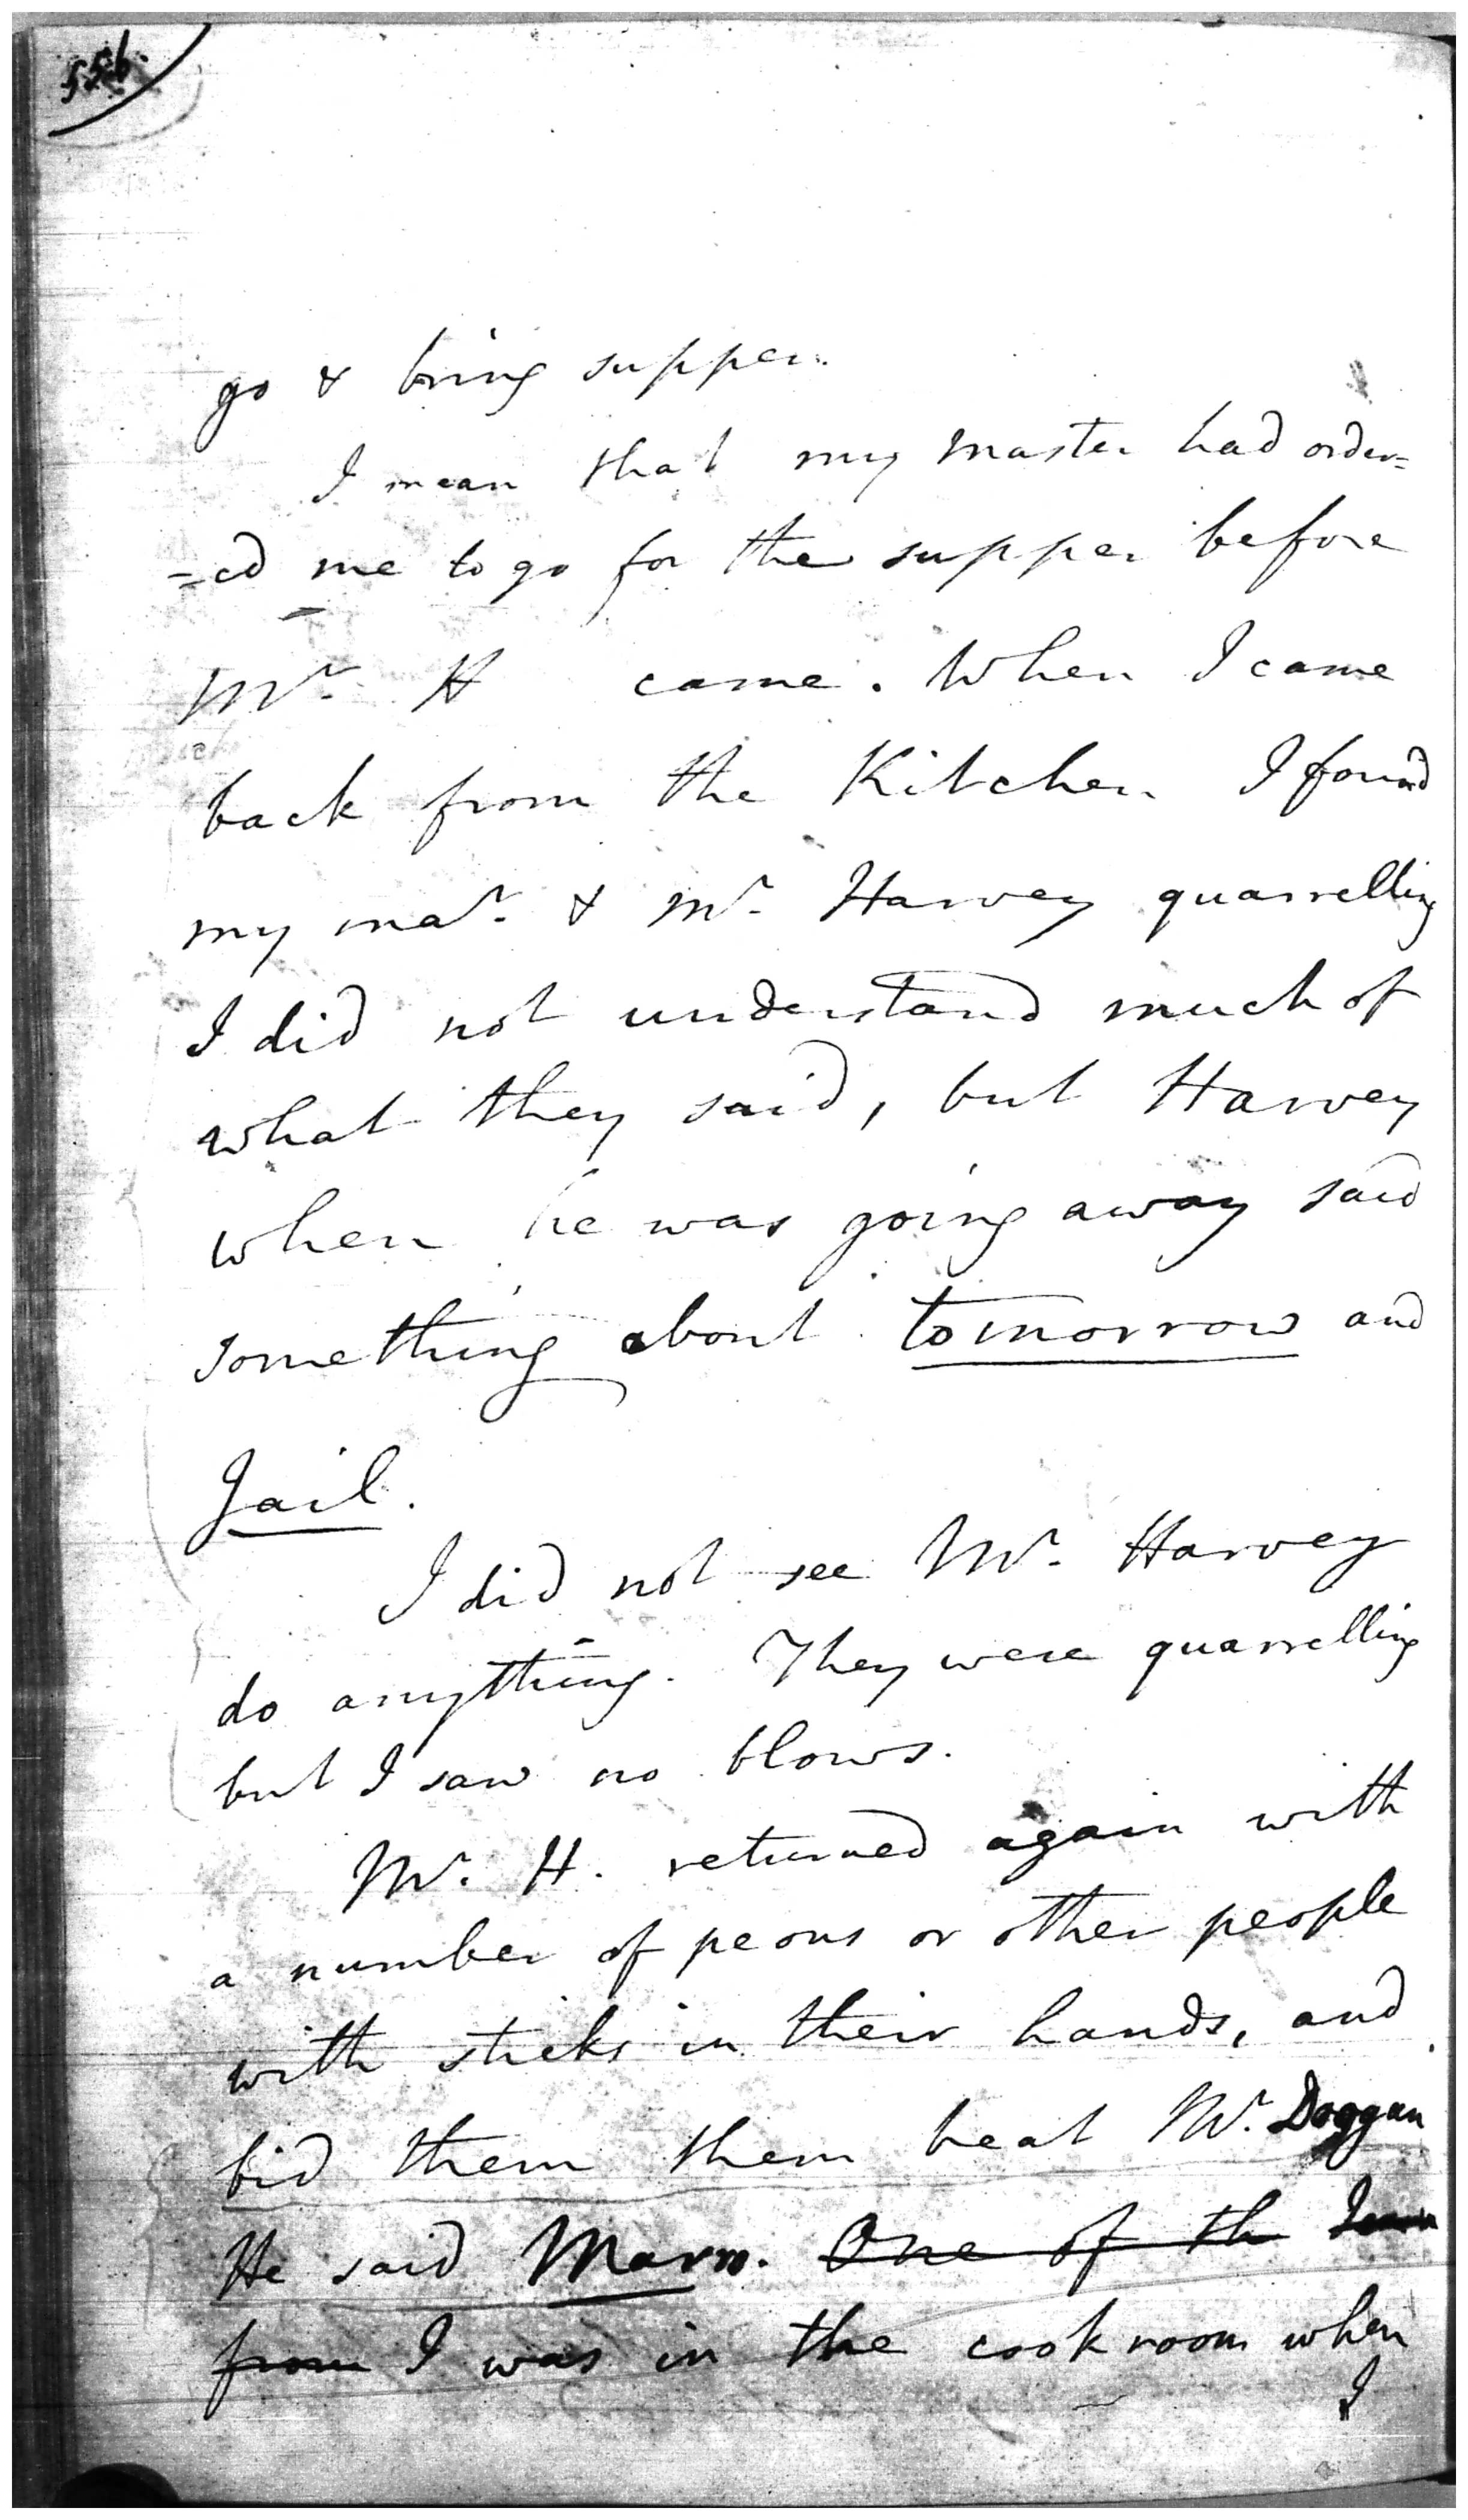 556.
go & bring supper.
I mean that my master had order=
=ed me to go for the supper before
Mr. H came. When I came
back from the Kitchen I found
my mar. & Mr. Harvey quarrelling
I did not understand much of
what they said, but Harvey
when he was going away said
something about tomorrow and
Jail.
I did not see Mr. Harvey
do anything. They were quarrelling
but I saw no blows.
Mr. H. returned again with
a number of peons or other people
with sticks in their hands, and
bid them them beat Mr. Doggan
He said Marro. One of th
from I was in the cook room when
I